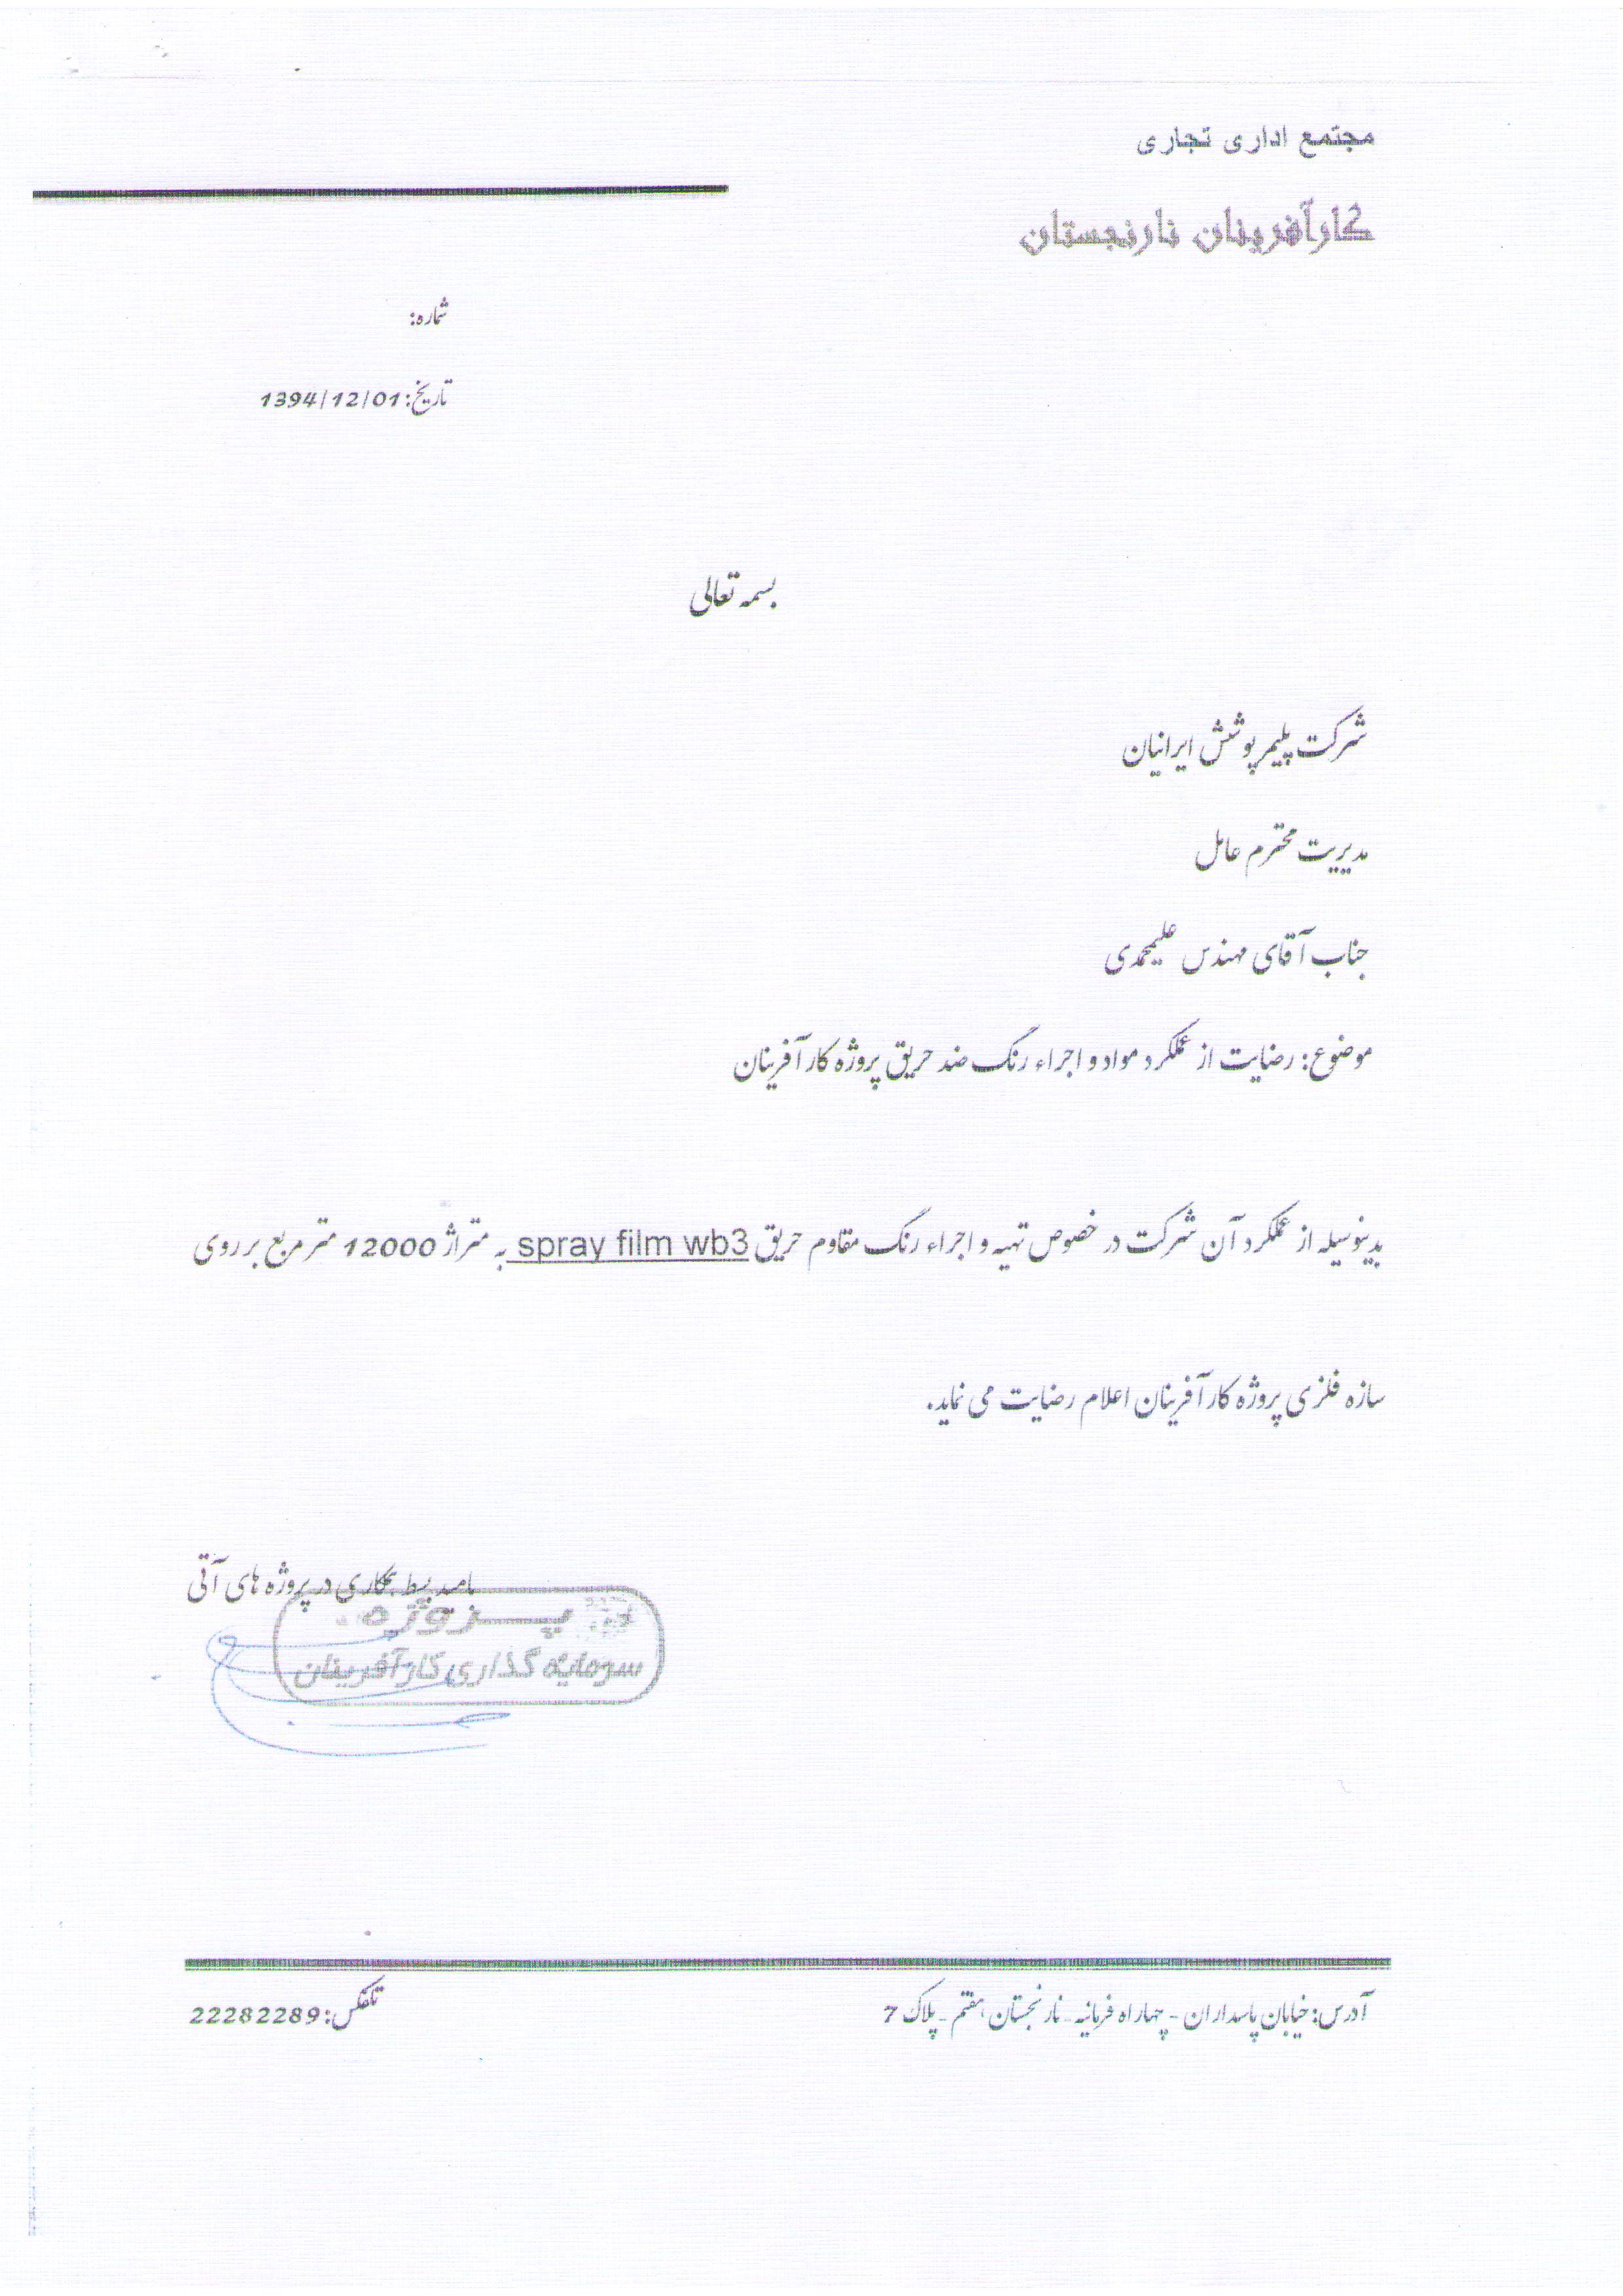 مجتمع اداری تجاری
کارآفرینان نارنجستان
شماره:
تاریخ: 1394/12/01
بسمه تعالی
شرکت پلیمر پوشش ایرانیان
مدیریت محترم عامل
جناب آقای مهندس علیمحمدی
موضوع: رضایت از عملکرد مواد و اجراء رنگ ضد حریق پروژه کارآفرینان
بدینوسیله از عملکرد آن شرکت در خصوص تهیه و اجراء رنگ مقاوم حریق spray film wb3 به متراژ 12000 متر مربع بر روی
سازه فلزی پروژه کارآفرینان اعلام رضایت می نماید.
بامید بسط همکاری در پروژه های آتی
پروژه
سرمایه گذاری کارآفرینان
آدرس: خیابان پاسداران - چهارراه فرمانیه - نارنجستان هفتم - پلاک 7
تلفکس: 22282289